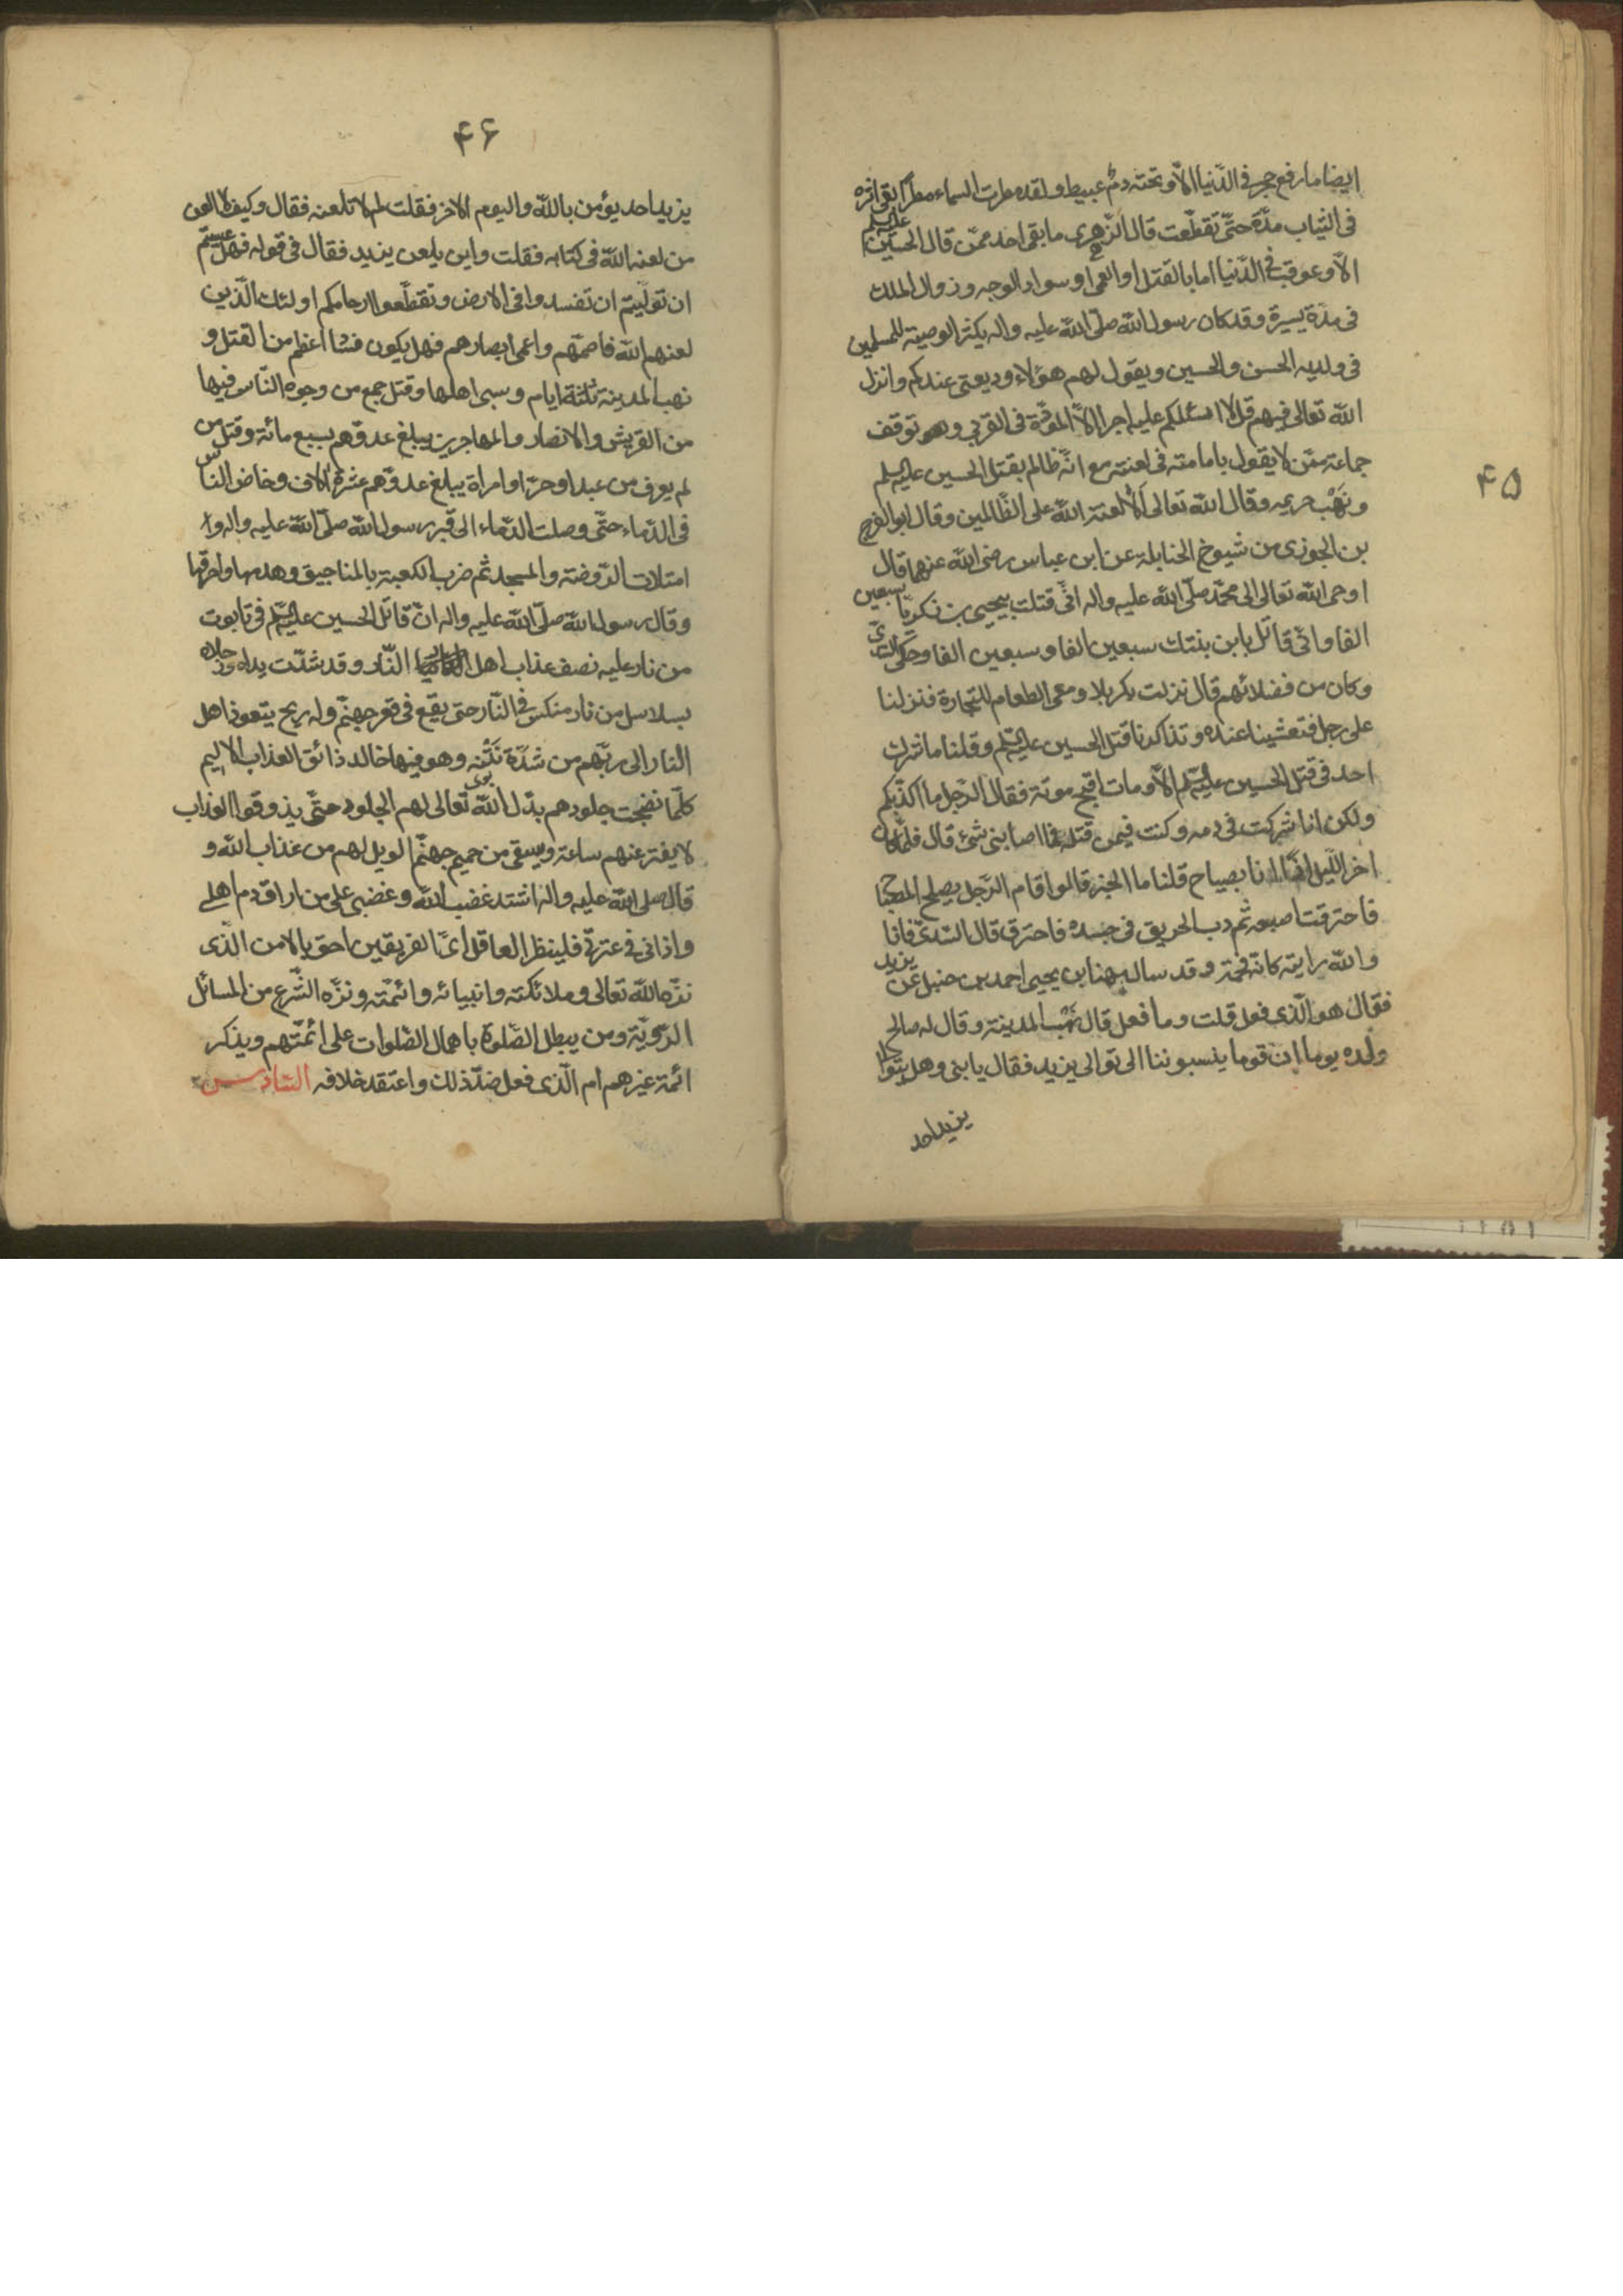 ۴۵
ايضا ما رفع حجر فى الدّنيا الّا وتحته دم عبيط ولقد مطرت السماء مطرا بقى اثره
فى الثياب مدّة حتّى تقطّعت قال الزهرى ما بقى احد ممّن قاتل الحسين عليه السلم
الّا وعوقب فى الدّنيا اما بالقتل او العمى او سواد الوجه وزوال الملك
فى مدّة يسيرة وقد كان رسول الله صلّى الله عليه واله يكثر الوصيّة للمسلمين
فى ولديه الحسن والحسين ويقول لهم هؤلاء وديعتى عندكم وانزل
الله تعالى فيهم قل لا اسئلكم عليه اجرا الّا المودّة فى القربى وهو توقف
جماعة ممّن لا يقول بامامته فى لعنته مع انّه ظالم بقتل الحسين عليه السلم
ونَهْب حريمه وقال الله تعالى اَلا لعنة الله على الظّالمين وقال ابو الفرج
بن الجوزى من شيوخ الحنابلة عن ابن عباس رضى الله عنهما قال
اوحى الله تعالى الى محمّد صلّى الله عليه واله انّى قتلت بيحيى بن زكريّا سبعين
الفا وانّى قاتل بابن بنتك سبعين الفا وسبعين الفا وحكى السّدّى
وكان من فضلائهم قال نزلت بكربلا ومعى الطعام للتجارة فنزلنا
على رجل فتعشينا عنده وتذاكرنا قتل الحسين عليه السلم وقلنا ما شرك
احد فى قتل الحسين عليه السلم الّا ومات اقبح موتة فقال الرّجل ما اكذبكم
ولكن انا شركت فى دمه وكنت فيمن قتله فما اصابنى شئ قال فلمّا كان
اخر اللّيل اذا انا بصياح قلنا ما الخبر قالوا قام الرّجل يصلح المصباح
فاحترقت اصبعه ثم دب الحريق فى جسده فاحترق قال السّدىّ فانا
والله رايته كانّه فحمة وقد سال مهنا بن يحيى احمد بن حنبل عن يزيد
فقال هو الّذى فعل قلت وما فعل قال نَهْب المدينة وقال له صالح
ولده يوما ان قوما ينسبوننا الى توالى يزيد فقال يا بنى وهل يتوالى
يزيد احد
۴۶
يزيد احد يؤمن بالله واليوم الاخر فقلت لم لا تلعنه فقال وكيف لا العن
من لعنه الله فى كتابه فقلت واين يلعن يزيد فقال فى قوله فهل عسيتم
ان تولّيتم ان تفسدوا فى الارض وتقطّعوا ارحامكم اولئك الّذين
لعنهم الله فاصمّهم واعمى ابصارهم فهل يكون فسادا اعظم من القتل و
نهب المدينة ثلثة ايام وسبى اهلها وقتل جمع من وجوه النّاس فيها
من القريش والانصار والمهاجرين يبلغ عددهم سبع مائة وقتل من
لم يعرف من عبد او حرّ او امراة يبلغ عددهم عشرة الاف وخاض الناس
فى الدّماء حتّى وصلت الدّماء الى قبر رسول الله صلّى الله عليه واله و
امتلات الرّوضة والمسجد ثم ضرب الكعبة بالمناجيق وهدمها واحرقها
وقال رسول الله صلّى الله عليه واله انّ قاتل الحسين عليه السلم فى تابوت
من نار عليه نصف عذاب اهل النّار وقد شدّت يداه ورجلاه
بسلاسل من نار منكس فى النّار حتى يقع فى قعر جهنّم وله ريح يتعوذ اهل
النار الى ربّهم من شدّة نَتْنه وهو فيها خالد ذائق العذاب الاليم
كلّما نضجت جلودهم بدّل الله تعالى لهم الجلود حتّى يذوقوا العذاب
لا يفتر عنهم ساعة ويسقى من حميم جهنّم الويل لهم من عذاب الله و
قال صلى الله عليه واله اشتد غضب الله وغضبى على من اراق دم اهلى
واذانى فى عترتى فلينظر العاقل اىّ الفريقين احق بالامن الّذى
نزّه الله تعالى وملائكته وانبيائه وائمّته ونزّه الشّرع من المسائل
الردّيّة ومن يبطل الصّلوة باهمال الصّلوات على ائمّتهم ويذكر
ائمّة غيرهم ام الّذى فعل ضدّ ذلك واعتقد خلافه السّادس